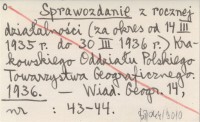 Sprawozdanie z rocznej
działalności (za okres od 14 III
1935 r. do 30 III 1936 r.) Kra-
kowskiego Oddziału Polskiego
Towarzystwa Geograficznego.
1936. — Wiad. Geogr. 14,
nr : 43-44.